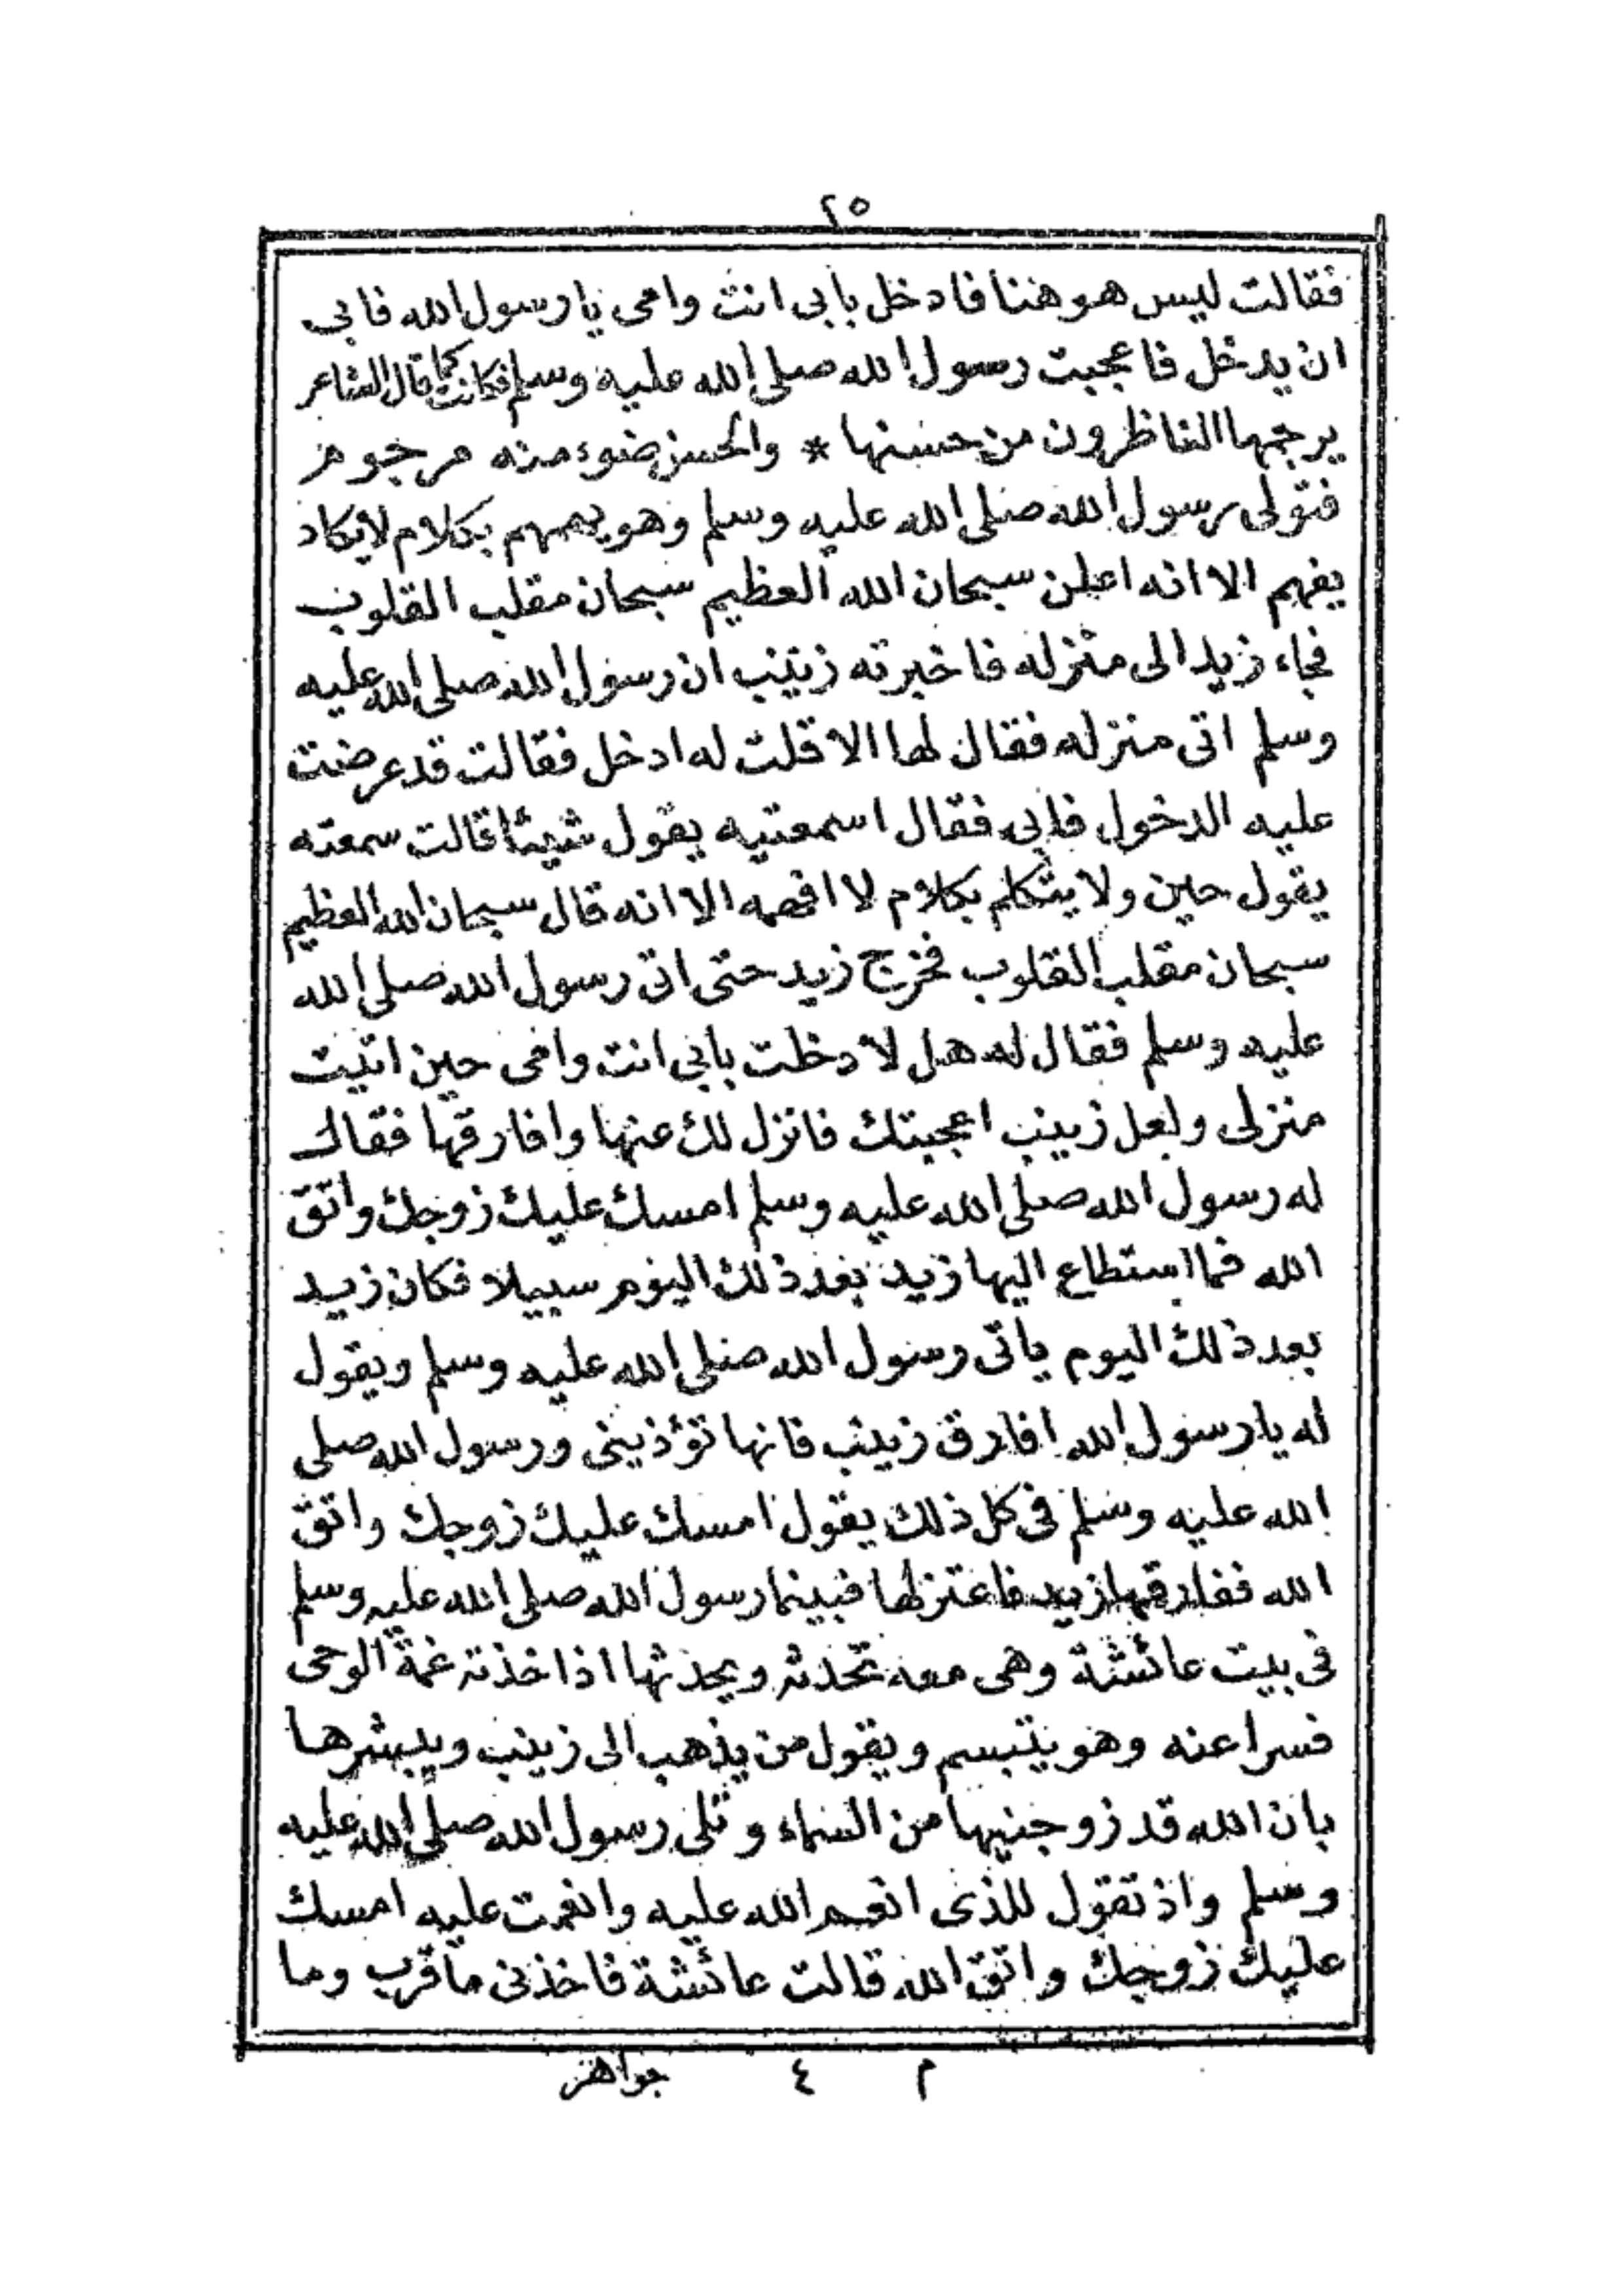 ٢٥
فقالت ليس هو هنا فادخل بابى انت وامى يا رسول الله فابى
ان يدخل فاعجبت رسول الله صلى الله عليه وسلم فكانت كما قال الشاعر
يرجمها الناظرون من حسنها * والحسن ضوء منه مرجوم
فتولى رسول الله صلى الله عليه وسلم وهو يهمهم بكلام لا يكاد
يفهم الا انه اعلن سبحان الله العظيم سبحان مقلب القلوب
فجاء زيد الى منزله فاخبرته زينب ان رسول الله صلى الله عليه
وسلم اتى منزله فقال لها الا قلت له ادخل فقالت قد عرضت
عليه الدخول فابى فقال اسمعتيه يقول شيئا قالت سمعته
يقول حين ولا يتكلم بكلام لا افهمه الا انه قال سبحان الله العظيم
سبحان مقلب القلوب فخرج زيد حتى اتى رسول الله صلى الله
عليه وسلم فقال له هل لا دخلت بابى انت وامى حين اتيت
منزلى ولعل زينب اعجبتك فانزل لك عنها وافارقها فقال
له رسول الله صلى الله عليه وسلم امسك عليك زوجك واتق
الله فما استطاع اليها زيد بعد ذلك اليوم سبيلا فكان زيد
بعد ذلك اليوم ياتى رسول الله صلى الله عليه وسلم ويقول
له يا رسول الله افارق زينب فانها تؤذينى ورسول الله صلى
الله عليه وسلم فى كل ذلك يقول امسك عليك زوجك واتق
الله ففارقها زيد فاعتزلها فبينما رسول الله صلى الله عليه وسلم
فى بيت عائشة وهى معه تحدثه ويحدثها اذا خذته غمة الوحى
فسرا عنه وهو يتبسم ويقول من يذهب الى زينب ويبشرها
بان الله قد زوجنيها من السماء وتلى رسول الله صلى الله عليه
وسلم واذ تقول للذى انعم الله عليه وانعمت عليه امسك
عليك زوجك واتق الله قالت عائشة فاخذنى ما قرب وما
م ٤ جواهر